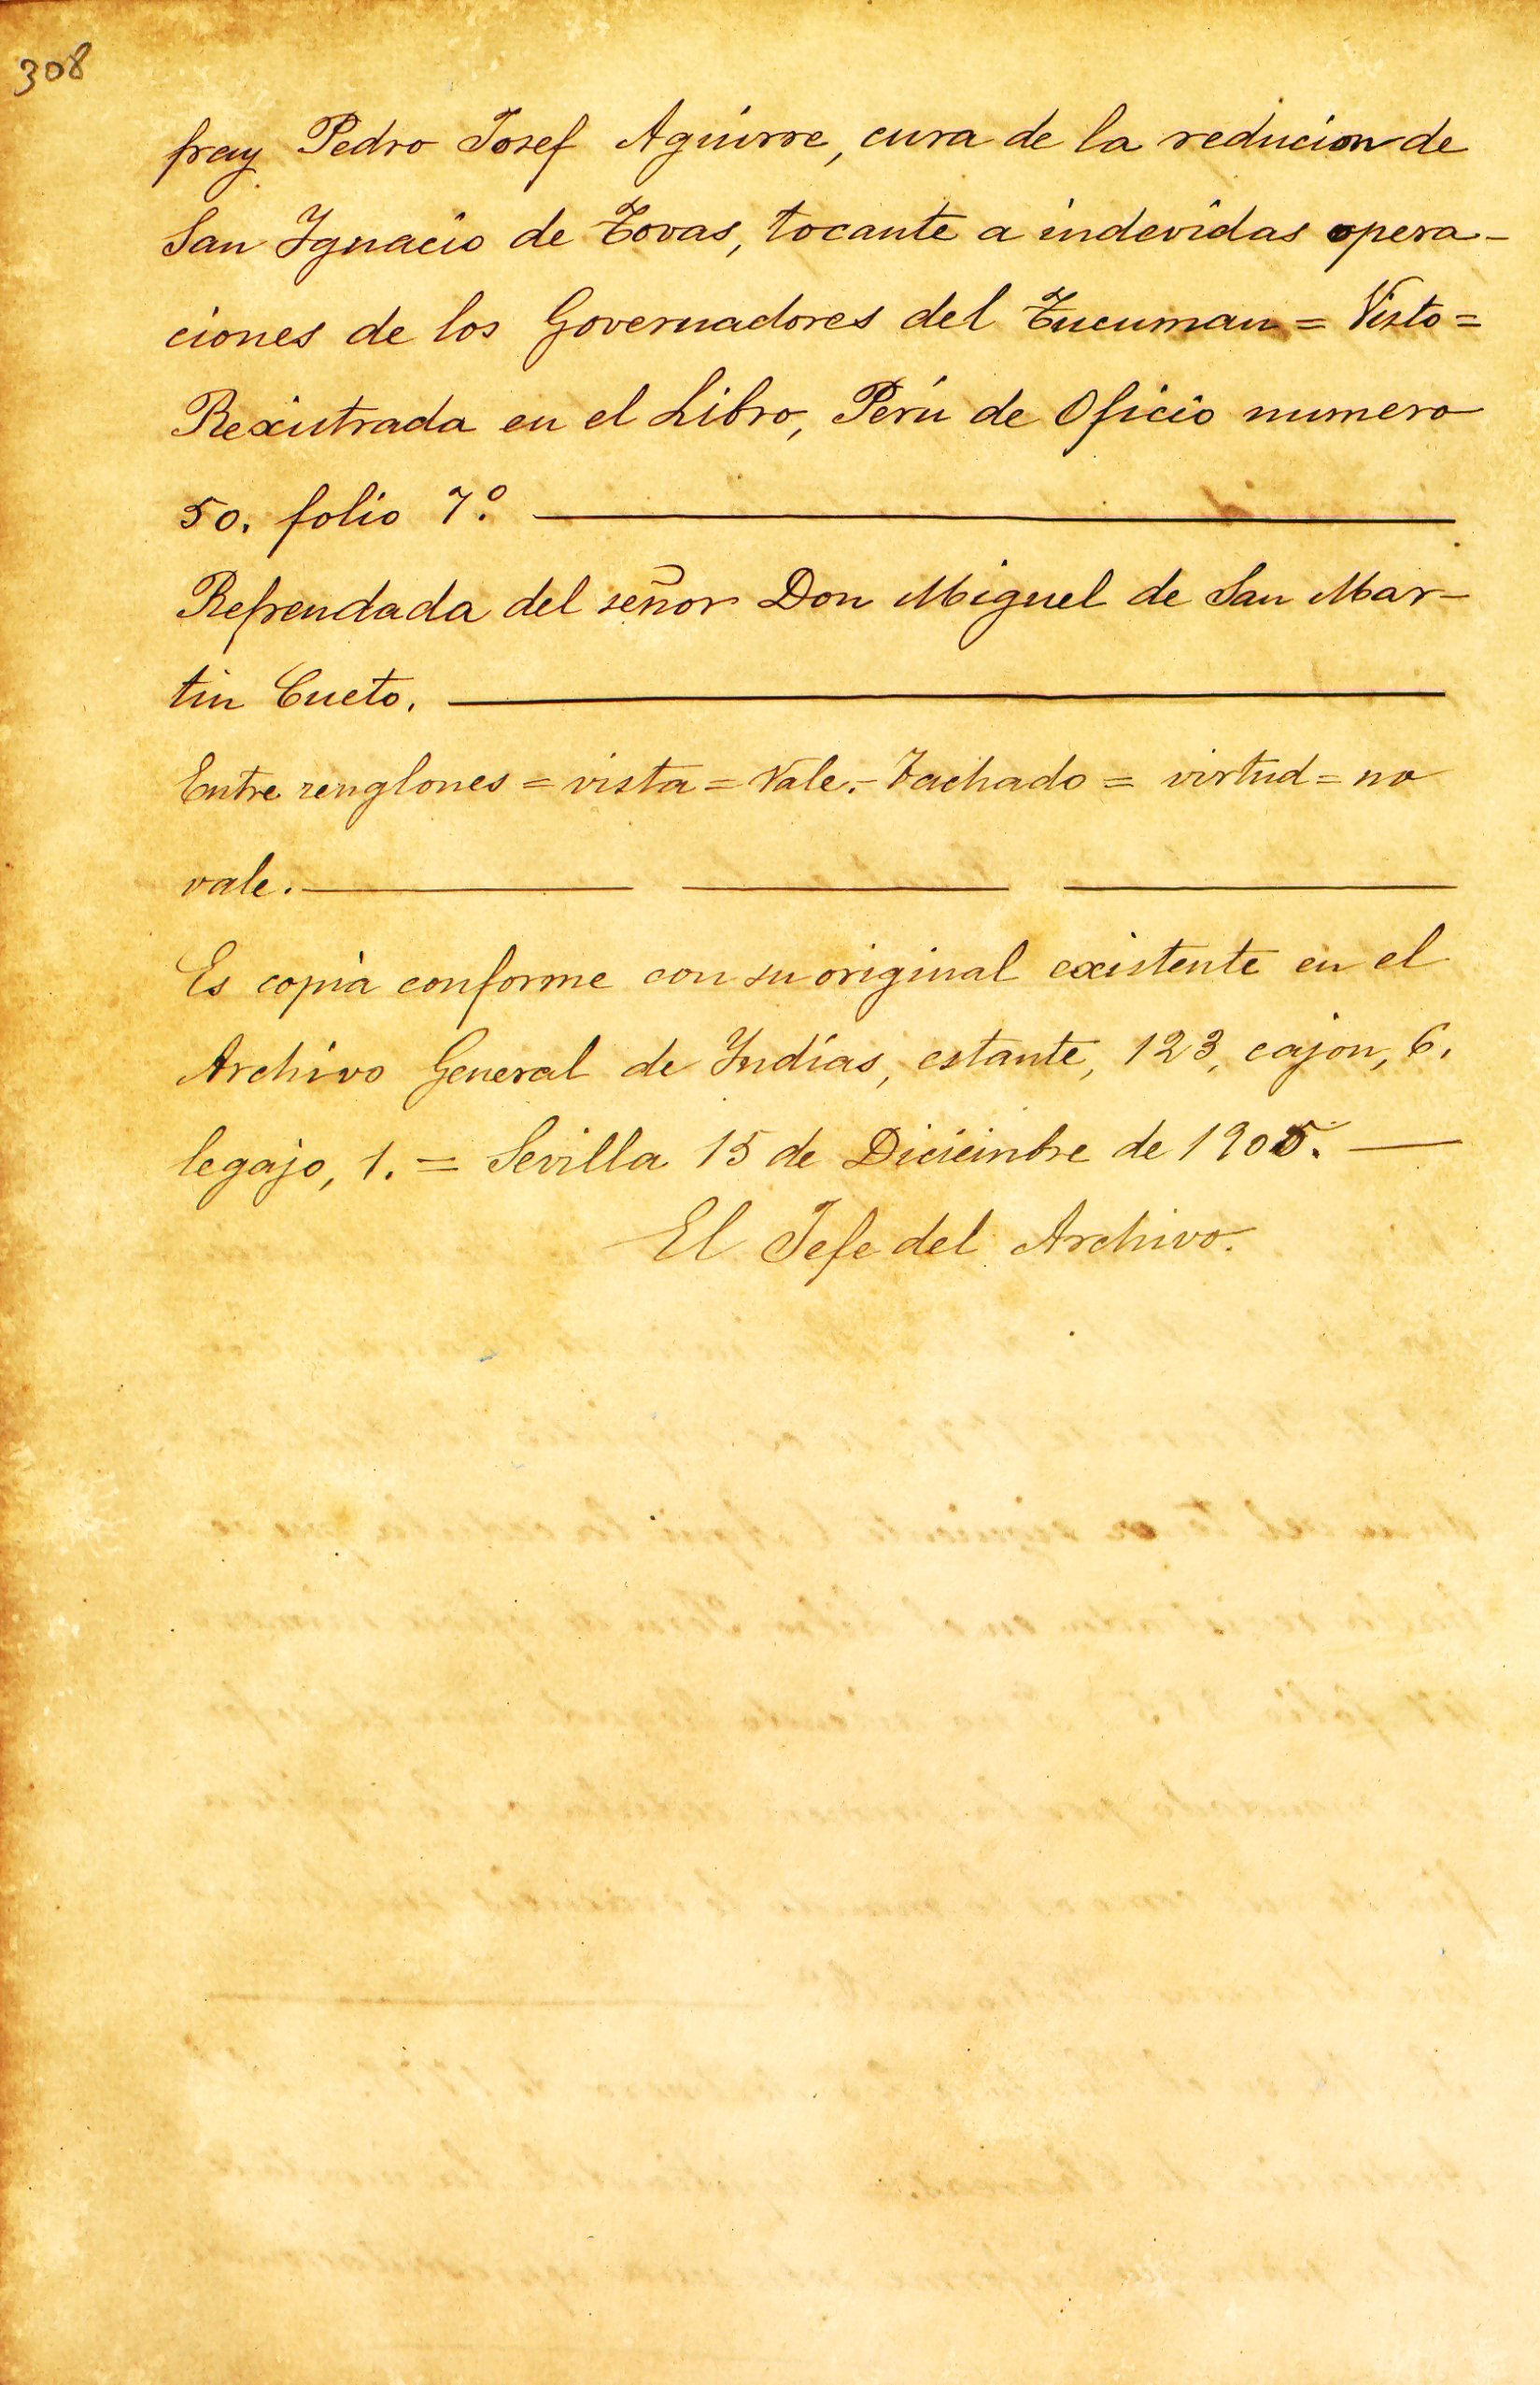 308
fray Pedro Josef Aguirre, cura de la reducion de
San Ignacio de Tovas, tocante a indevidas opera-
ciones de los Governadores del Tucuman = Visto =
Rexistrada en el Libro, Perú de Oficio numero
50. folio 7º.
Refrendada del señor Don Miguel de San Mar-
tin Cueto.
Entre renglones = vista = Vale. - Tachado = virtud = no
vale.
Es copia conforme con su original existente en el
Archivo General de Indias, estante, 123, cajon, 6.
legajo, 1. = Sevilla 15 de Diciembre de 1905.
El Jefe del Archivo.